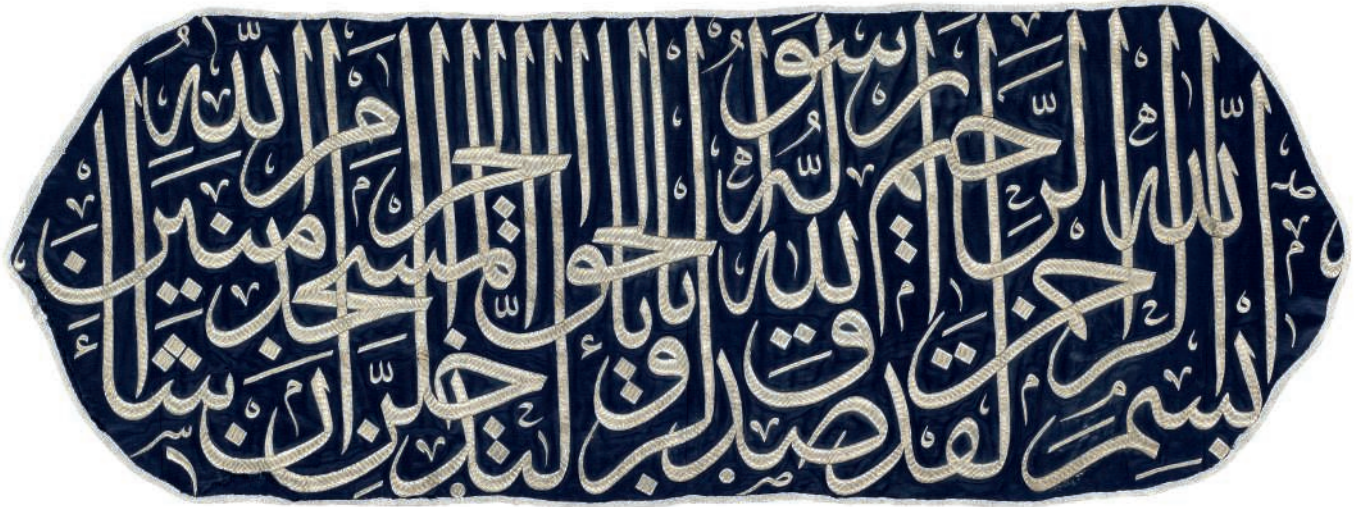 بسم الله الرحمن الرحيم لقد صدق الله رسوله الرءيا بالحق لتدخلن المسجد الحرام ان شاء الله امنين